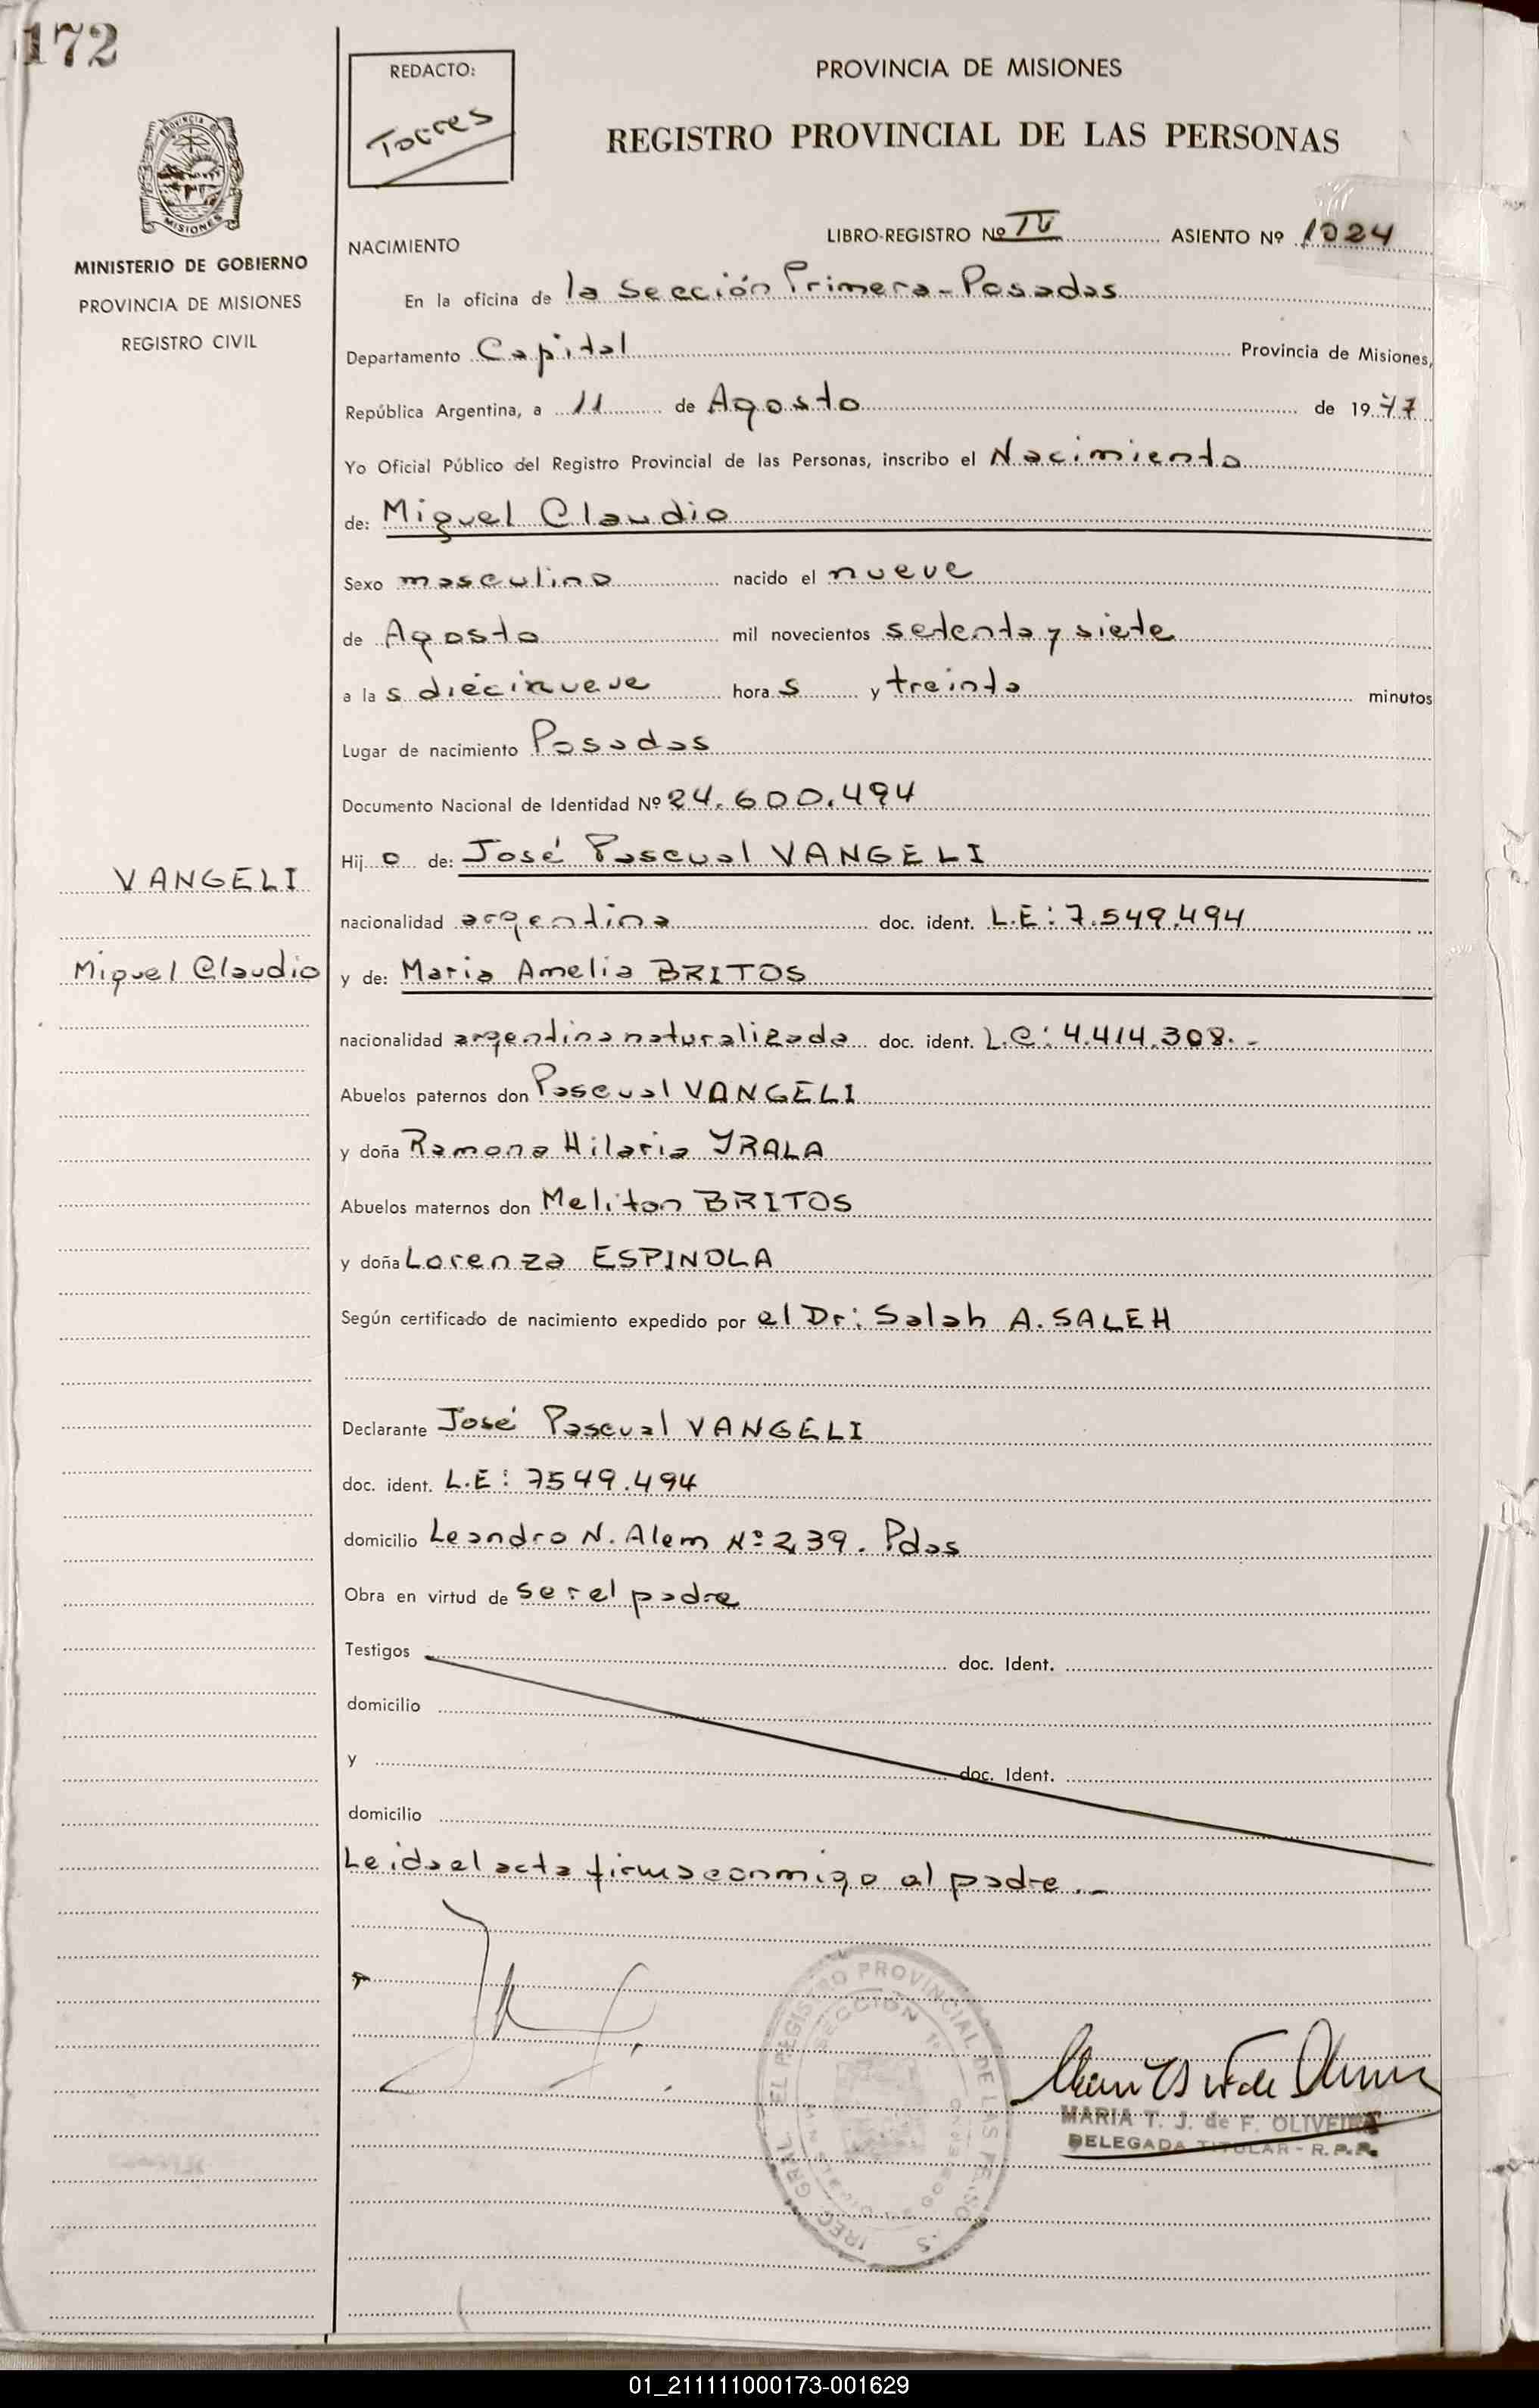 172
REDACTO:
Torres
PROVINCIA DE MISIONES
REGISTRO PROVINCIAL DE LAS PERSONAS
PROVINCIA DE
MISIONES
MINISTERIO DE GOBIERNO
PROVINCIA DE MISIONES
REGISTRO CIVIL
NACIMIENTO
LIBRO-REGISTRO Nº IV ASIENTO Nº 1024
En la oficina de la Sección Primera - Posadas
Departamento Capital Provincia de Misiones,
República Argentina, a 11 de Agosto de 1977
Yo Oficial Público del Registro Provincial de las Personas, inscribo el Nacimiento
de: Miguel Claudio
Sexo masculino nacido el nueve
de Agosto mil novecientos setenta y siete
a las diecinueve horas y treinta minutos
Lugar de nacimiento Posadas
Documento Nacional de Identidad Nº 24.600.494
Hijo de: José Pascual VANGELI
VANGELI
nacionalidad argentina doc. ident. L.E: 7.549.494
Miguel Claudio
y de: Maria Amelia BRITOS
nacionalidad argentina naturalizada doc. ident. L.C: 4.414.308.-
Abuelos paternos don Pascual VANGELI
y doña Ramona Hilaria YRALA
Abuelos maternos don Meliton BRITOS
y doña Lorenza ESPINOLA
Según certificado de nacimiento expedido por el Dr: Salah A. SALEH
Declarante José Pascual VANGELI
doc. ident. L.E: 7549.494
domicilio Leandro N. Alem Nº 239. Pdas
Obra en virtud de ser el padre
Testigos doc. Ident.
domicilio
y doc. Ident.
domicilio
Leida el acta firma conmigo al padre.-
GRAL. EL REGISTRO PROVINCIAL DE LAS PERSO
SECCION 1ª
MARIA T. J. de F. OLIVEIRA
DELEGADA TITULAR - R.P.P.
01_211111000173-001629